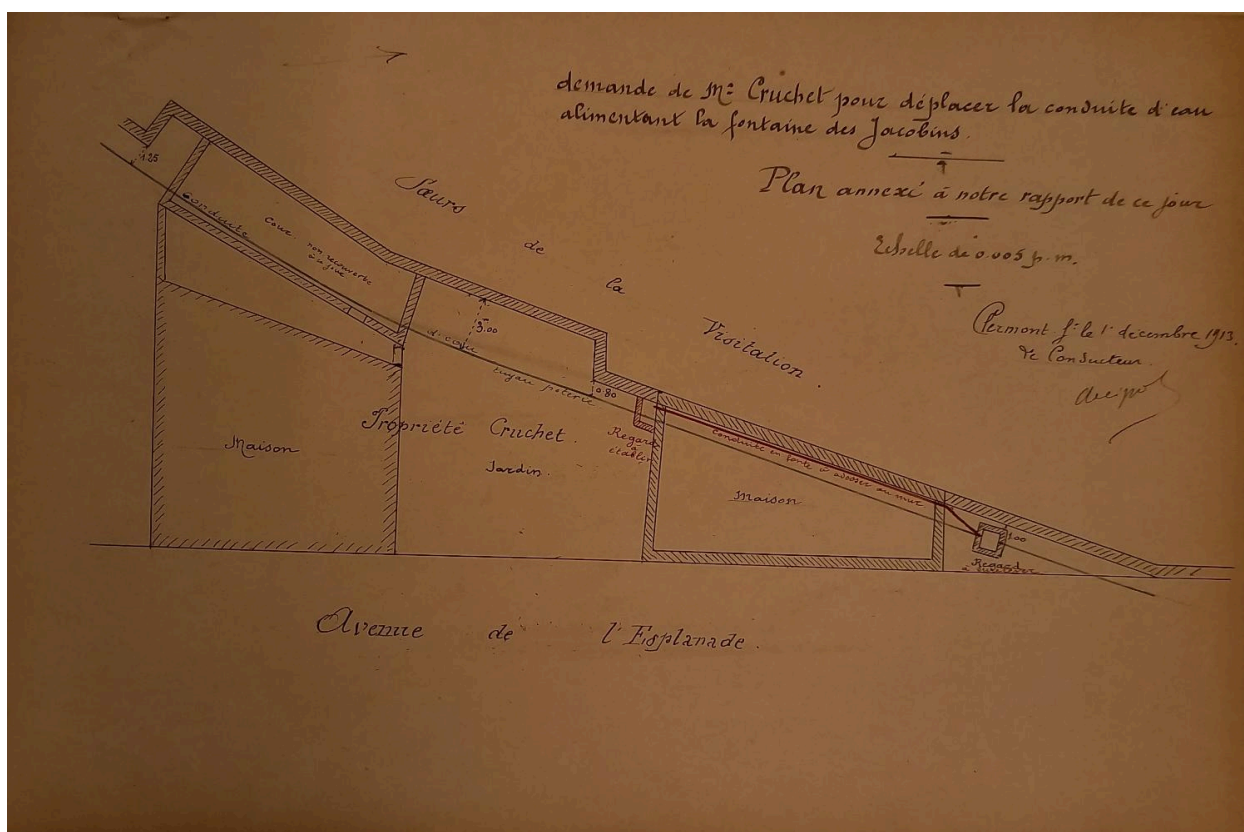 demande de Mr Cruchet pour déplacer la conduite d'eau
alimentant la fontaine des Jacobins.
Plan annexé à notre rapport de ce jour
Echelle de 0.005 p.m.
Clermont fd le 1r décembre 1913.
le Conducteur.
Sœurs de la Visitation.
1.25
Conduite
cour non recouverte
d'eau
3.00
tuyau poterie
0.80
Propriété Cruchet.
Jardin.
Maison
Regard
à établir
conduite en fonte à adosser au mur
Maison
1.00
Regard
Avenue de l'Esplanade.